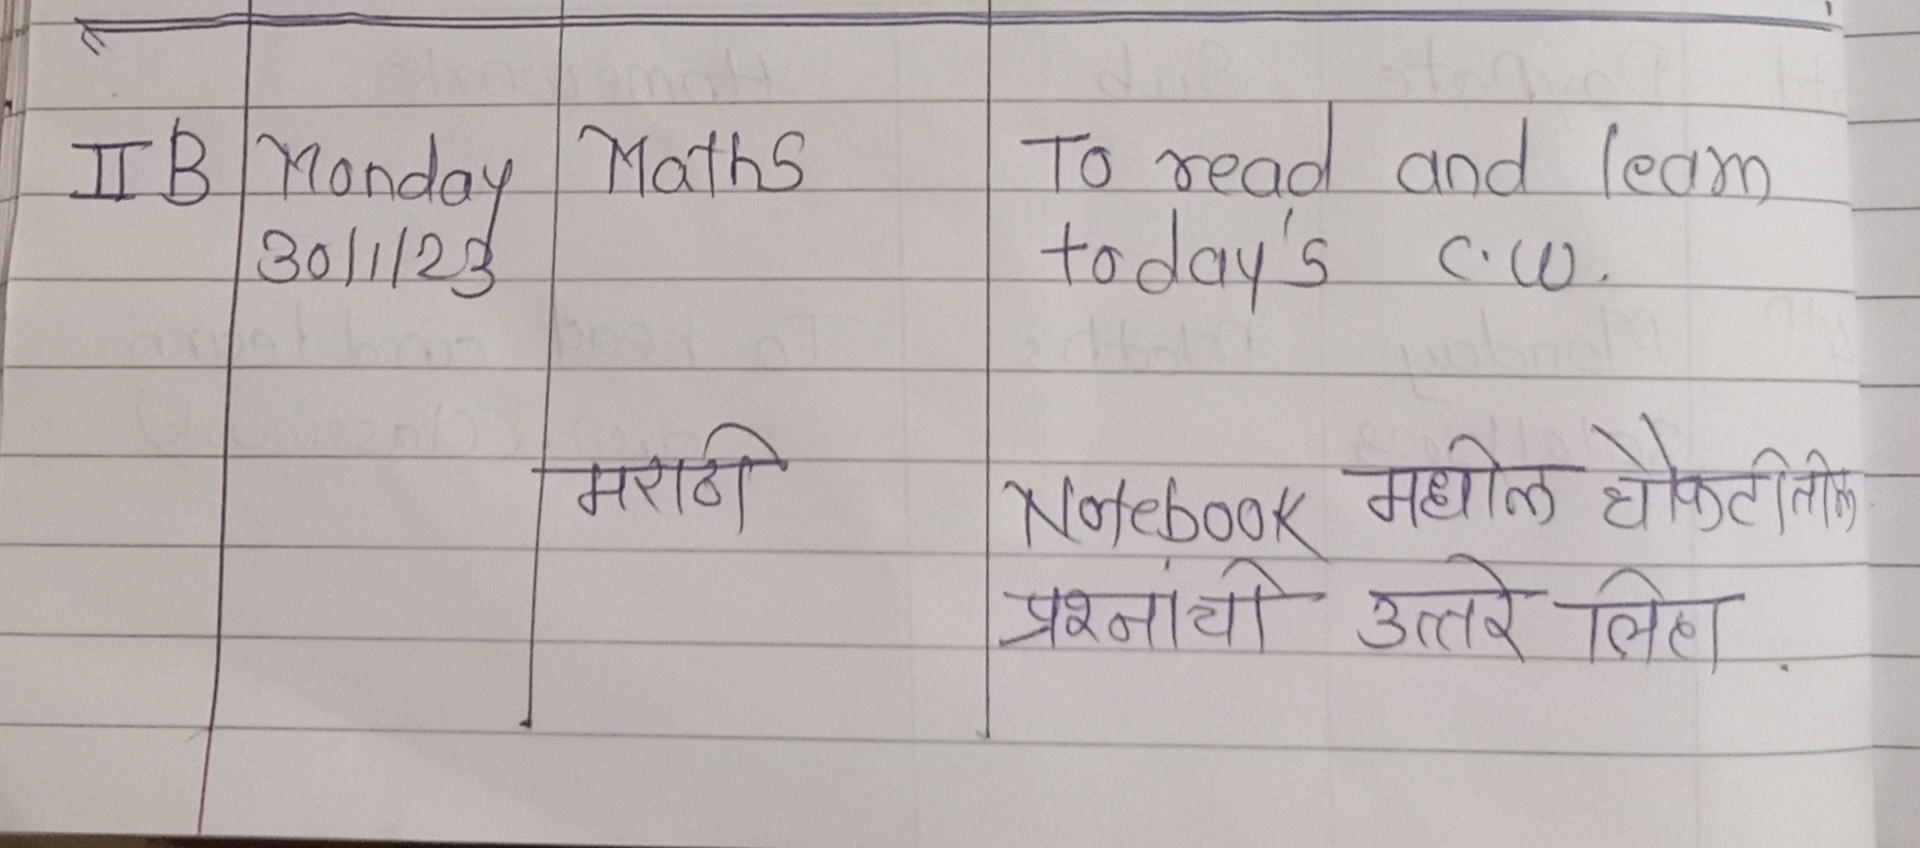 II B Monday Maths To read and learn
30/1/23 today's c.w.
मराठी Notebook मधील चौकटीतील
प्रश्नांची उत्तरे लिहा.